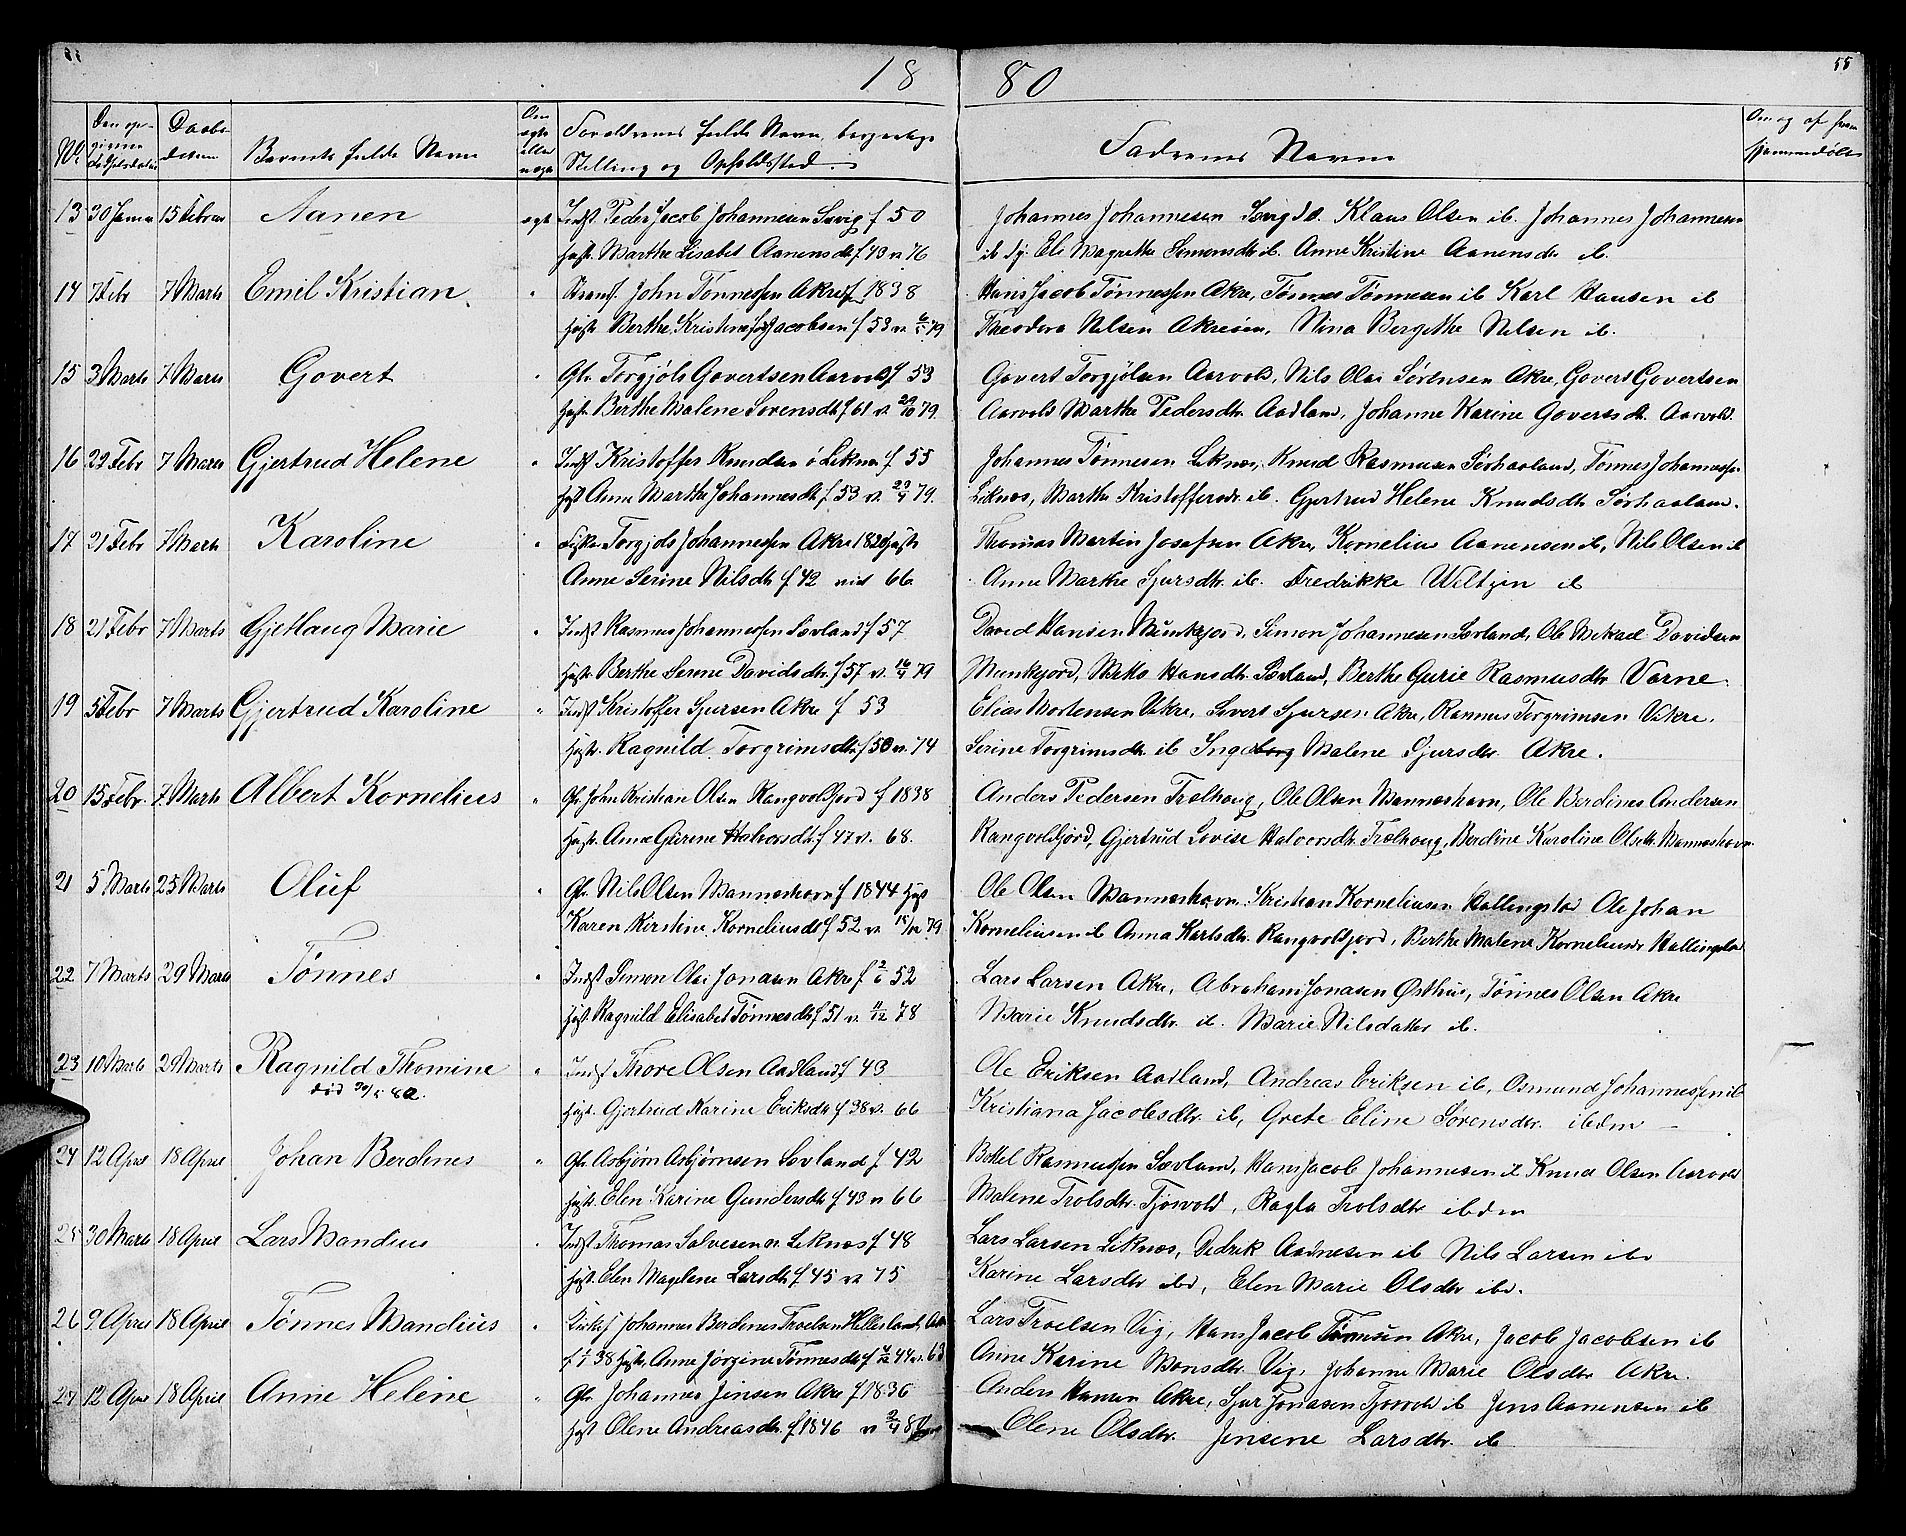 18 80
55
No.
Daabs
Barnets fulde Navn
Forældrenes fulde Navn, borgerlige
Stilling og Opholdssted.
Faddernes Navne
13 30 Januar 15 Februar Aanen ægt Indst. Peder Jacob Johannesen Sevig f 50
Hust. Marthe Lisabet Aanensdtr f 49 v. 76
Johannes Johannesen Sevig Klaus Olsen ib. Johannes Johannesen
ib Eli Magrethe Simonsdtr ib. Anne Kristine Aanensdtr ib.
14 7 Febr 7 Marts Emil Kristian " John Tönnessen Akre f 1838
Hust. Berthe Kristine Jacobsen f 53 v. 79
Hans Jacob Tönnessen Akre, Tönnes Tönnesen ib Karl Hansen ib
Theodora Nilsen Akresen, Nina Bergithe Nilsen ib.
15 3 Marts 7 Marts Govert " Gbr. Torgjöls Govertsen Aarvold f 53
Hust. Berthe Malene Sörensdtr f 61 v. 29/10 79.
Govert Torgjölsen Aarvold, Nils Olai Sörensen Akre, Govert Govertsen
Aarvold Marthe Pedersdtr. Aadland, Johanne Karine Govertsdt. Aarvold.
16 22 Febr 7 Marts Gjertrud Helene " Indst Kristoffer Knudsen ö Liknes f 55
Hust Anne Marthe Johannesdt f. 53 v. 79.
Johannes Tönnesen Liknes, Knud Rasmusen Sörhaaland, Tönnes Johannessen
Liknes, Marthe Kristoffersdr. ib. Gjertrud Helene Knudsdtr Sörhaaland.
17 21 Febr 7 Marts Karoline " Fisker Torgjöls Johannessen Akre 1820 Hustr
Anne Serine Nilsdtr f. 42 viet 66
Thomas Martin Josefsen Akre, Kornelius Aanensen ib, Nils Olsen ib
Anne Marthe Sjursdtr. ib. Fredrikke Weltzin ib
18 21 Febr 7 Marts Gjetlaug Marie " Indst Rasmus Johannessen Sævland f 57
Hust. Berthe Serene Davidsdtr. f 57 v. 16/4 79
David Hansen Munkejord, Simon Johannesen Sævland, Ole Mikael Davidsen
Munkejord, Hansdtr. Sævland, Berthe Gurie Rasmusdtr Varne.
19 5 Febr 7 Marts Gjertrud Karoline " Indst Kristoffer Sjursen Akre f 53
Hust. Ragnild Torgrimsdtr f 50 v. 74
Elias Mortensen Vikre, Sivert Sjursen Akre, Rasmus Torgrimsen Vikre.
Serine Torgrimsdt. ib Ingeborg Malene Sjursdtr Akre.
20 15 Febr. 7 Marts Albert Kornelius " Gbr. John Kristian Olsen Rangvoldsjord f 1838
Hust. Anne Gurine Halvorsdt. f 47 v. 68.
Anders Pedersen Trælhaug, Ole Olsen Manneshavn, Ole Berdines Andersen
Rangvoldfjord, Gjertrud Lovise Halvorsdt. Trælhaug, Berdine Karoline Olsdtr. Manneshavn
21 5 Marts 25 Marts Oluf " Gbr. Nils Olsen Manneshavn f 1844 Hust
Karen Kirstine Korneliusdt f 52 v. 79
Ole Olsen Manneshavn. Kristian Korneliusen Hallingstad Ole Johan
Korneliusen ib Anna Karlsdtr. Rangvoldfjord, Berthe Malene Korneliusdr Hallingstad
22 7 Marts 29 Marts Tönnes " Indst Simon Olai Jonasen Akre f 52
Hust Ragnild Elisabet Tönnesdt f 51 v. 78
Lars Larsen Akre, Abraham Jonasen Östhus, Tönnes Olsen Akre
Marie Knudsdtr. ib. Marie Nilsdatter ib.
23 10 Marts 29 Marts Ragnild Thomine " Indst Thore Olsen Aadland f 43
död 80.
Hust. Gjertrud Karine Eriksdtr f 38 v. 66
Ole Eriksen Aadland, Andreas Eriksen ib, Osmund Johannessen ib
Kristiana Jacobsdtr. ib, Grete Eline Sörensdtr. ibdm
24 12 April 18 April Johan Berdines " Gbr Asbjörn Asbjörnsen Sævland f 42
Hust. Elen Karine Gundersdt f 43 v 66
Botel Rasmussen Sævland, Hans Jacob Johannesen ib Knud Olsen Aarvold
Malene Trolsdtr. Tjösvold, Ragla Trolsdtr ibdm
25 30 Marts 18 April Lars Mandius " Indst Thomas Salvesen Liknes f 48
Hust. Elen Magelene Larsdtr f 45 v 75
Lars Larsen Liknes, Didrik Aadnesen ib Nils Larsen ibd
Karine Larsdtr ibd, Elen Marie Olsdtr ibd.
26 9 April 18 April Tönnes Mandius " Johannes Berdines Troelsen Hellesland, Akre
f. 38 Hust. Anne Jörgine Tönnesdt f 44 v. 63
Lars Troelsen Vig, Hans Jacob Tönnesen Akre, Jacob Jacobsen ib
Anne Karine Monsdtr. Vig, Johanne Marie Olsdtr Akre.
27 12 April 18 April Anne Helene " Gbr. Johannes Jensen Akre f 1836
Hust Olene Andreasdtr. f 1846 v 80
Anders Hansen Akre, Sjur Jonasen Tjösvold ib Jens Aanensen ib
Olene Olsdtr. Jensine Larsdtr. ib